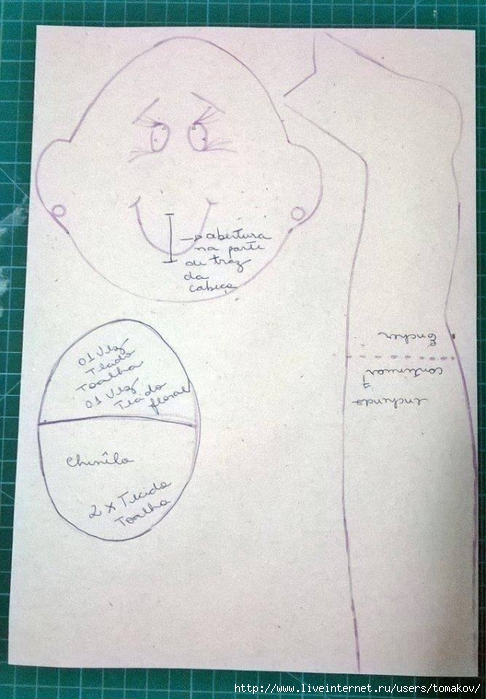 abertura
na parte
de traz
da
cabeça
01 Vez
Tecido
Toalha
01 Vez
Tecido
floral
Chinela
2 x Tecido
Toalha
Encher
continuar
enchendo
http://www.liveinternet.ru/users/tomakov/